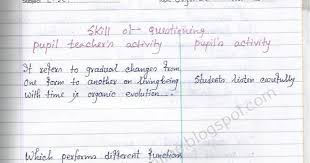 Skill of questioning
pupil teacher's activity
pupil's activity
It refers to gradual changes from
one form to another on living being
with time is organic evolution...
Students listen carefully
blogspot.com
Which performs different function